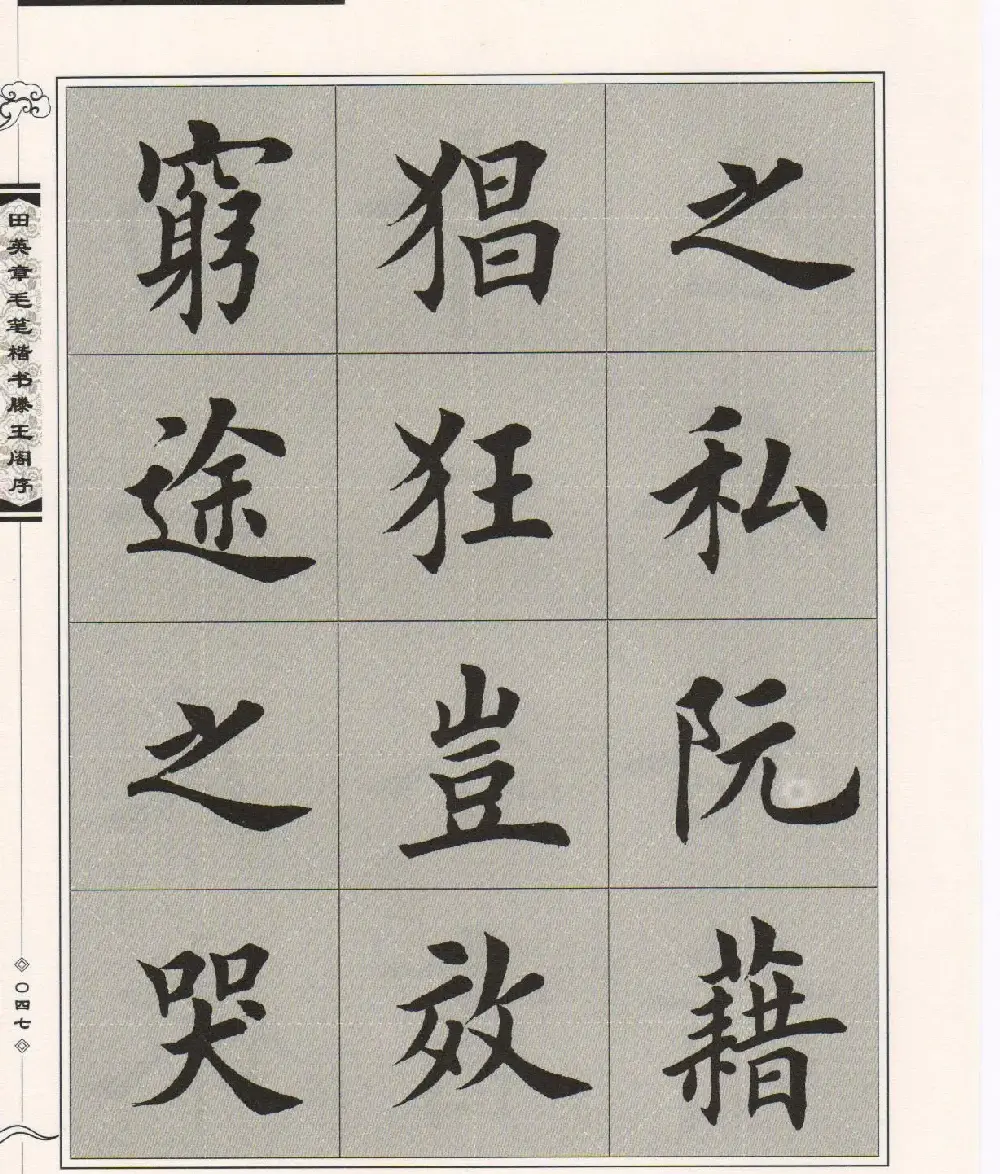 之私阮藉
猖狂豈效
窮途之哭
田英章毛笔楷书滕王阁序
〇四七